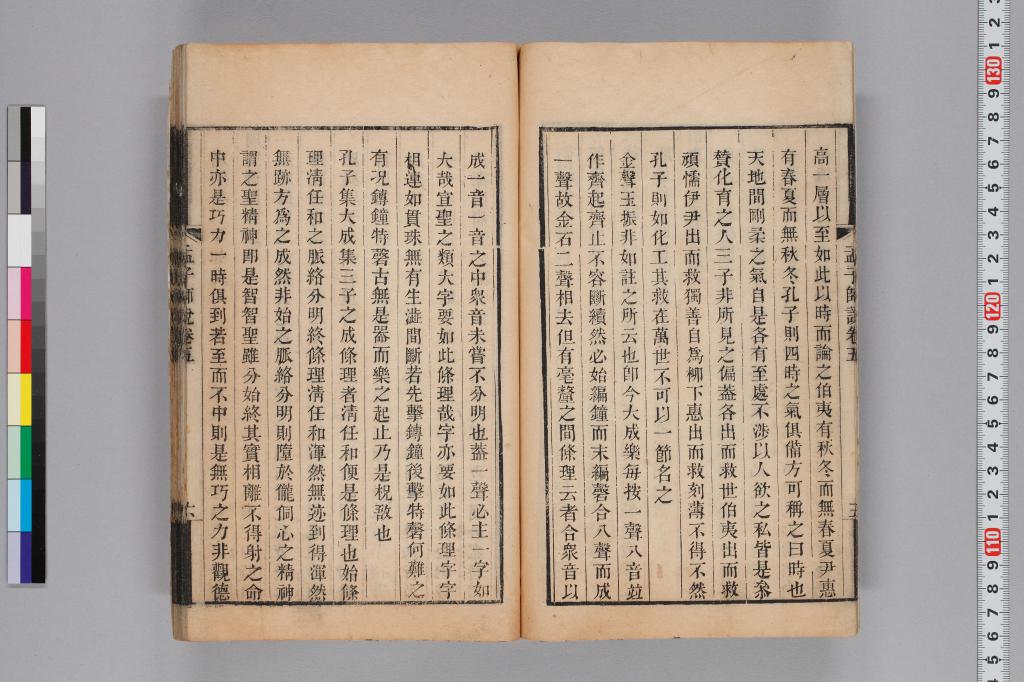 高一層以至如此以時而論之伯夷有秋冬而無春夏尹惠
有春夏而無秋冬孔子則四時之氣俱備方可稱之曰時也
天地間剛柔之氣自是各有至處不涉以人欲之私皆是叅
贊化育之人三子非所見之偏葢各出而救世伯夷出而救
頑懦伊尹出而救獨善自爲柳下惠出而救刻薄不得不然
孔子則如化工其救在萬世不可以一節名之
金聲玉振非如註之所云也卽今大成樂每按一聲八音竝
作齊起齊止不容斷續然必始編鐘而末編磬合八聲而成
一聲故金石二聲相去但有毫釐之間條理云者合衆音以
孟子師說卷五
五
成一音一音之中衆音未嘗不分明也葢一聲必主一字如
大哉宣聖之類大字要如此條理哉字亦要如此條理字字
相連如貫珠無有生澁間斷若先擊鏄鐘後擊特磬何難之
有况鏄鐘特磬古無是器而樂之起止乃是柷敔也
孔子集大成集三子之成條理者淸任和便是條理也始條
理淸任和之脈絡分明終條理淸任和渾然無迹到得渾然
無跡方爲之成然非始之脈絡分明則墮於儱侗心之精神
謂之聖精神卽是智智聖雖分始終其實相離不得射之命
中亦是巧力一時俱到若至而不中則是無巧之力非觀德
孟子師說卷五
六
130
120
110